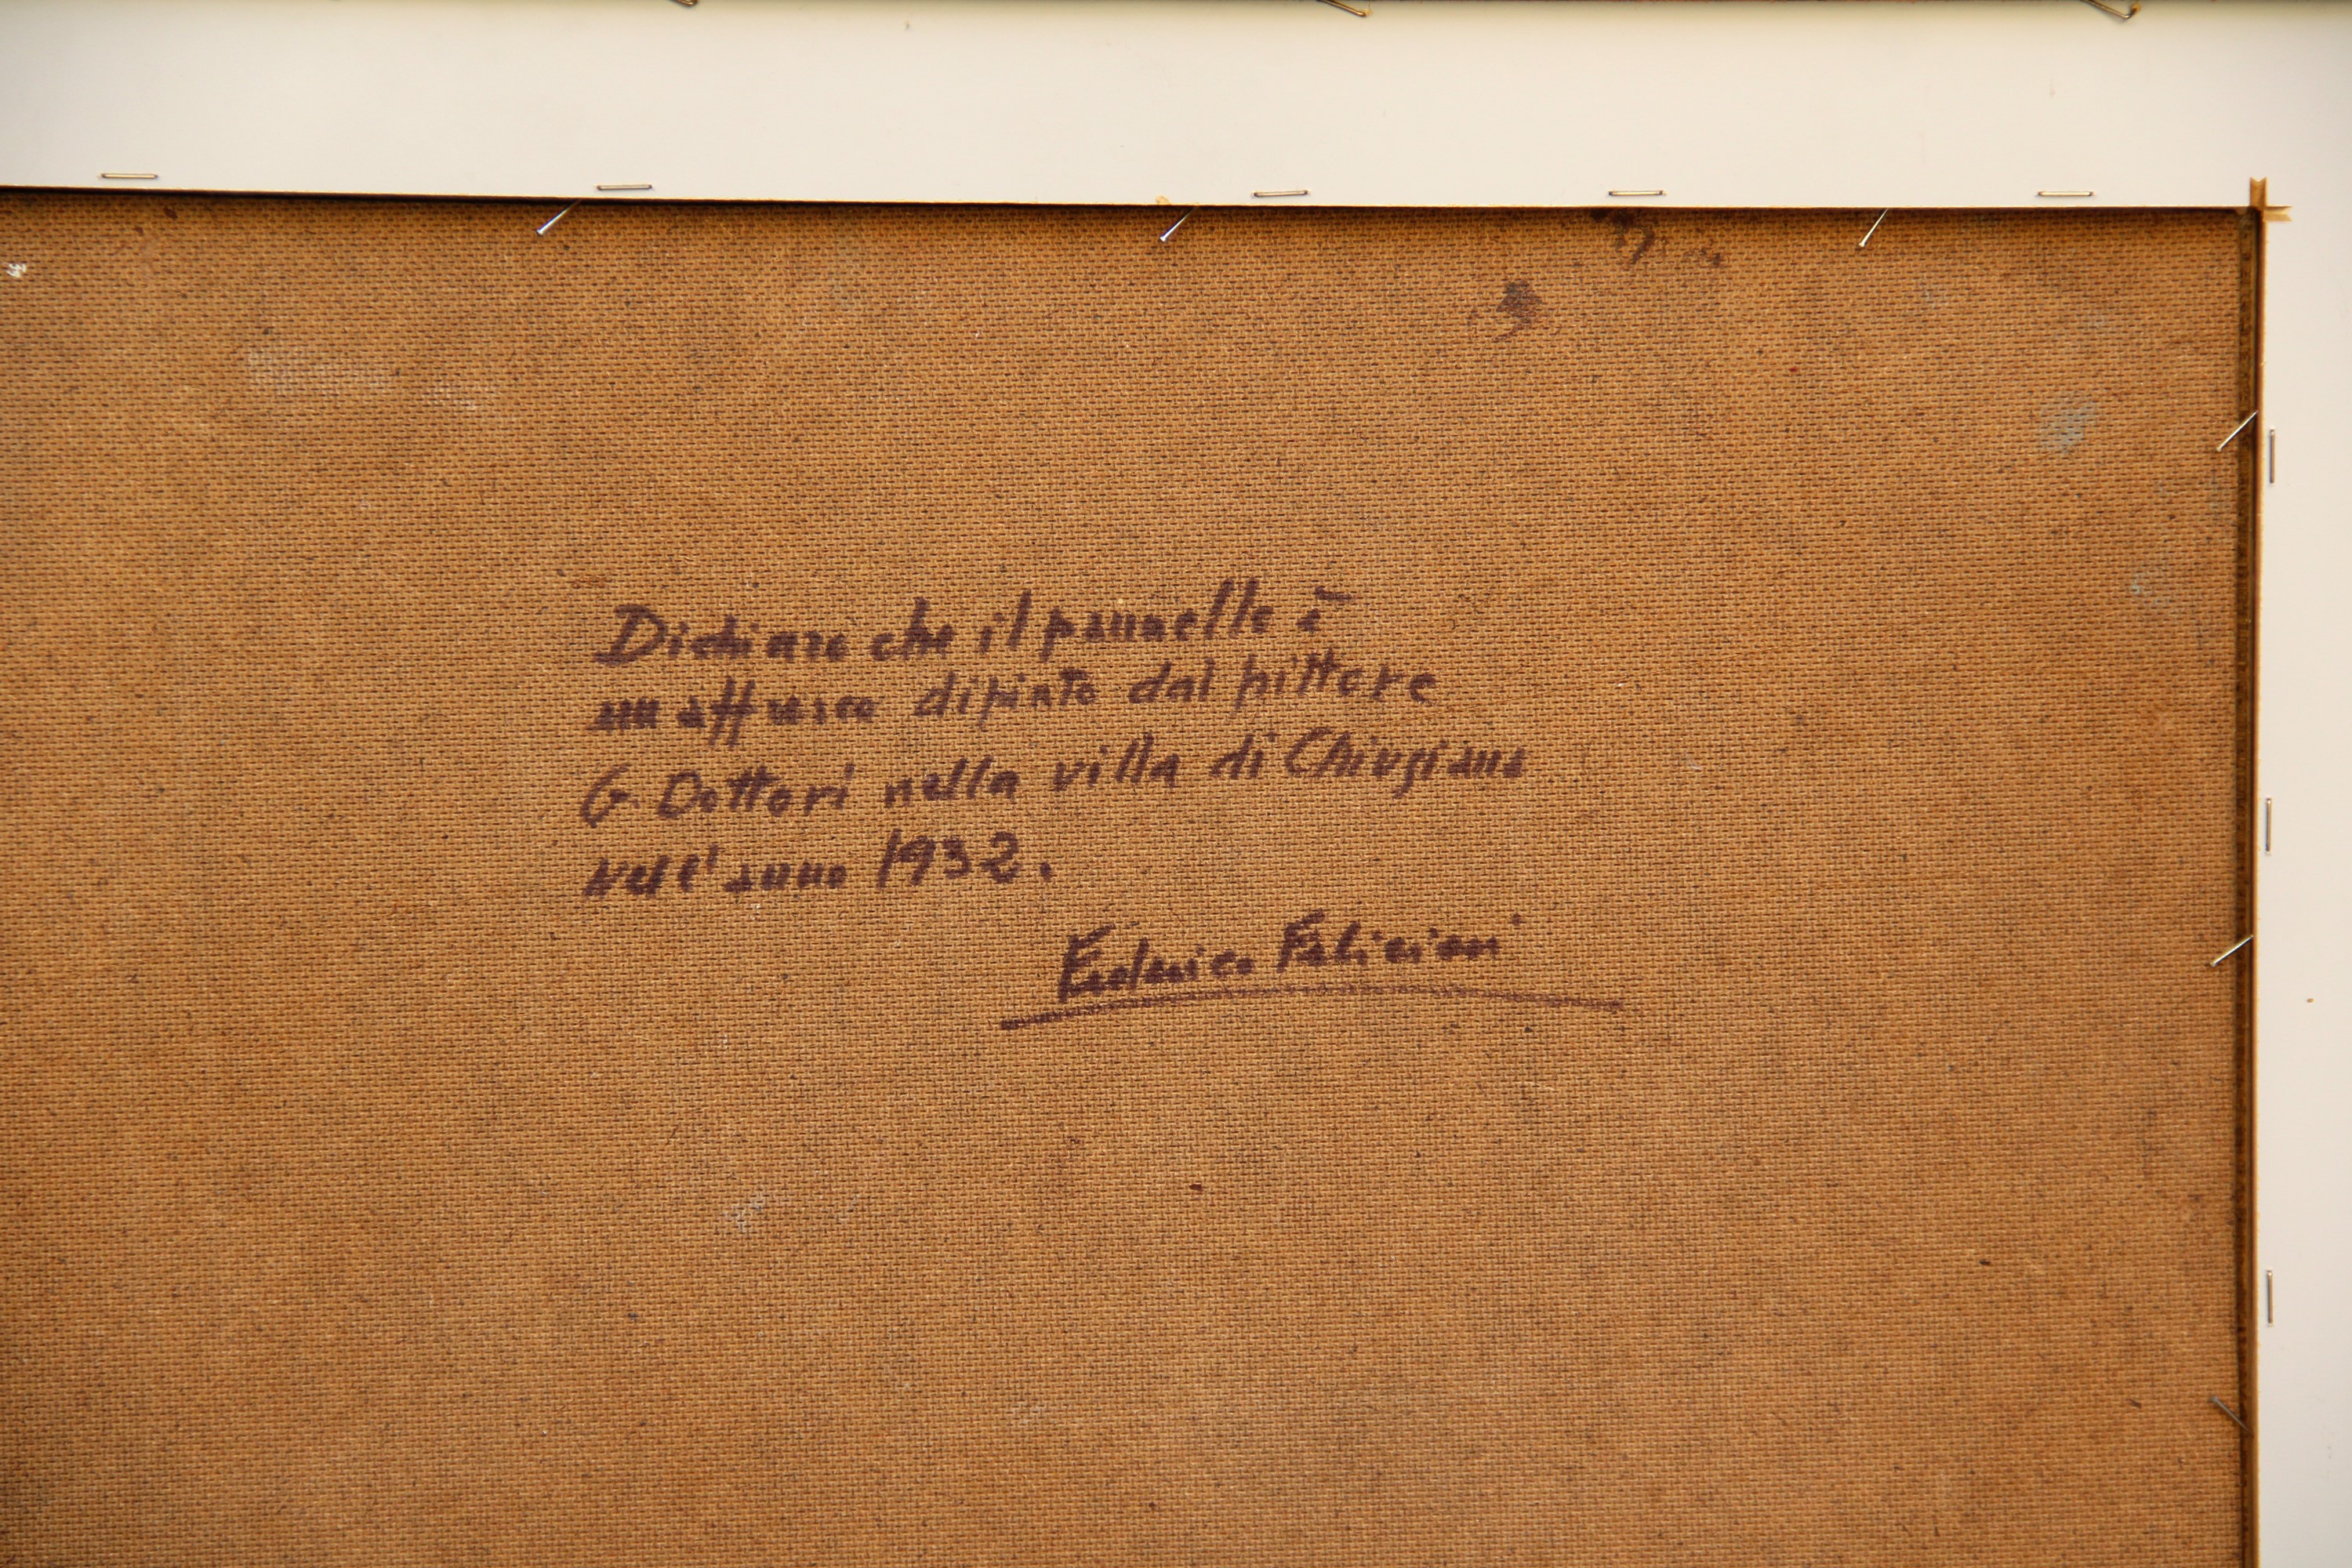 Dichiaro che il pannello è
un affresco dipinto dal pittore
G. Dottori nella villa di Chiugiana
nell'anno 1932.
Federico Feliciani